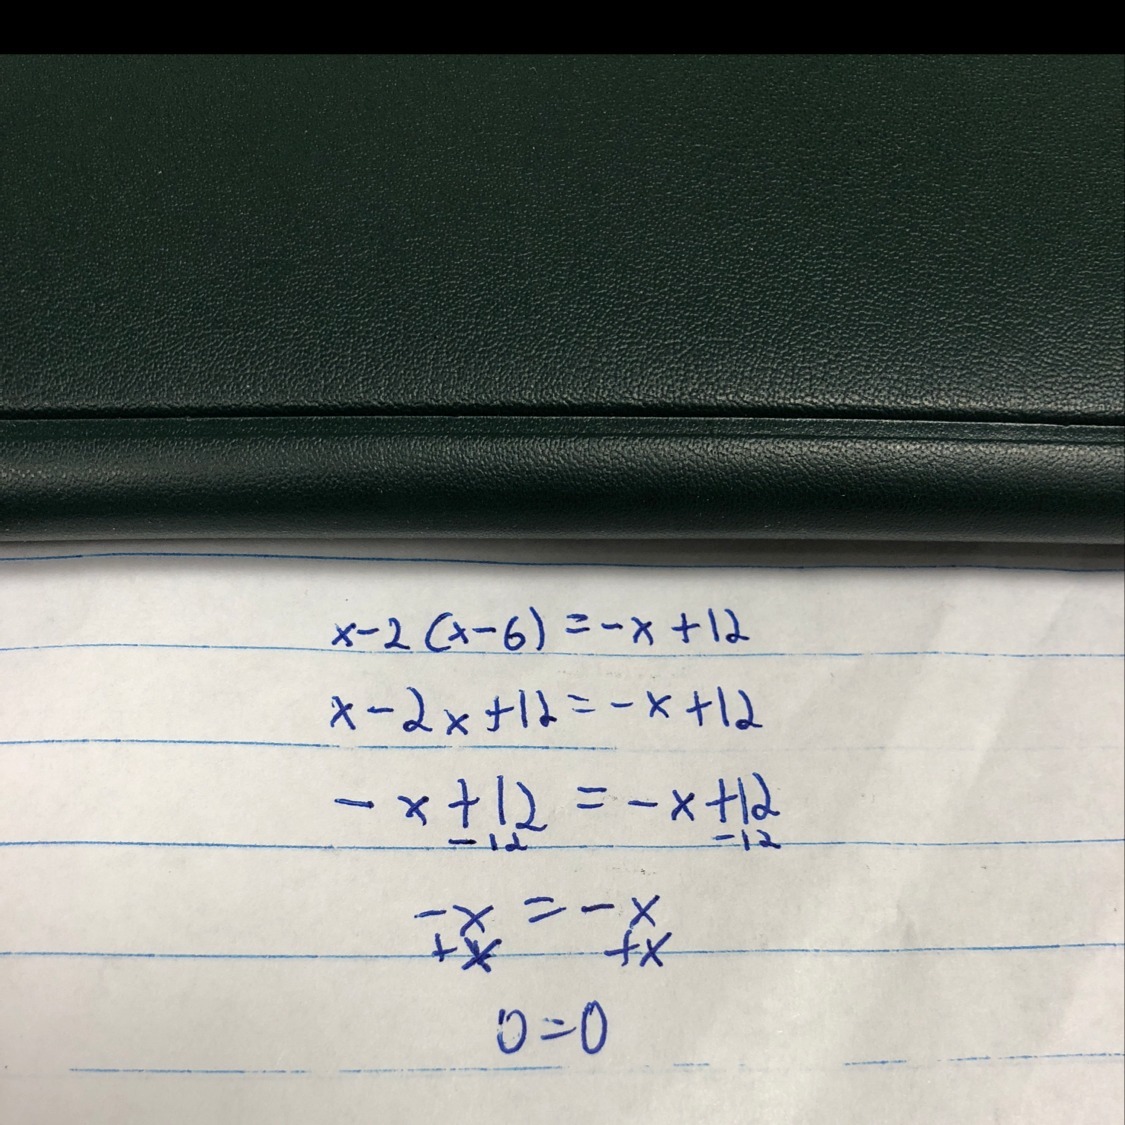 x-2(x-6)=-x+12
x-2x+12=-x+12
-x+12=-x+12
-12 -12
-x=-x
+x +x
0=0